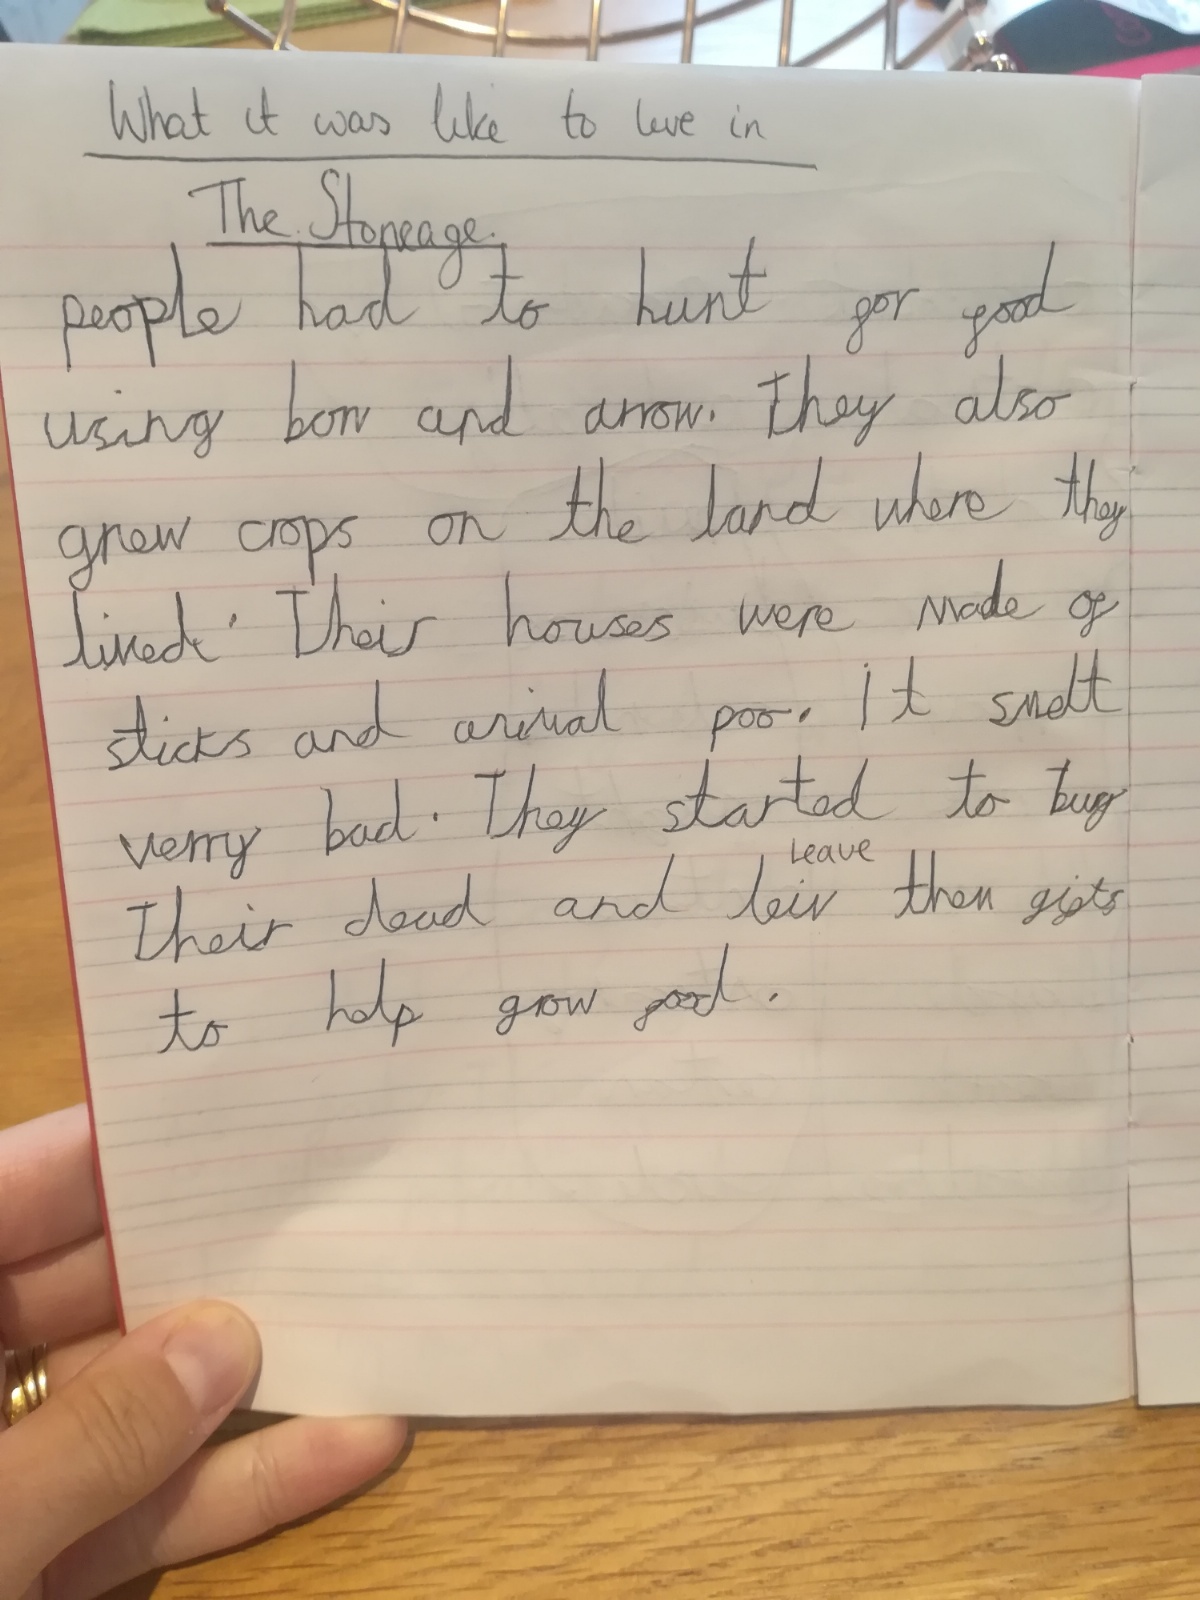 What it was like to live in
The Stoneage.
people had to hunt for food
using bow and arrow. They also
grew crops on the land where they
lived. Their houses were made of
sticks and animal poo. It smelt
verry bad. They started to bury
Their dead and leiv leave them gifts
to help grow food.